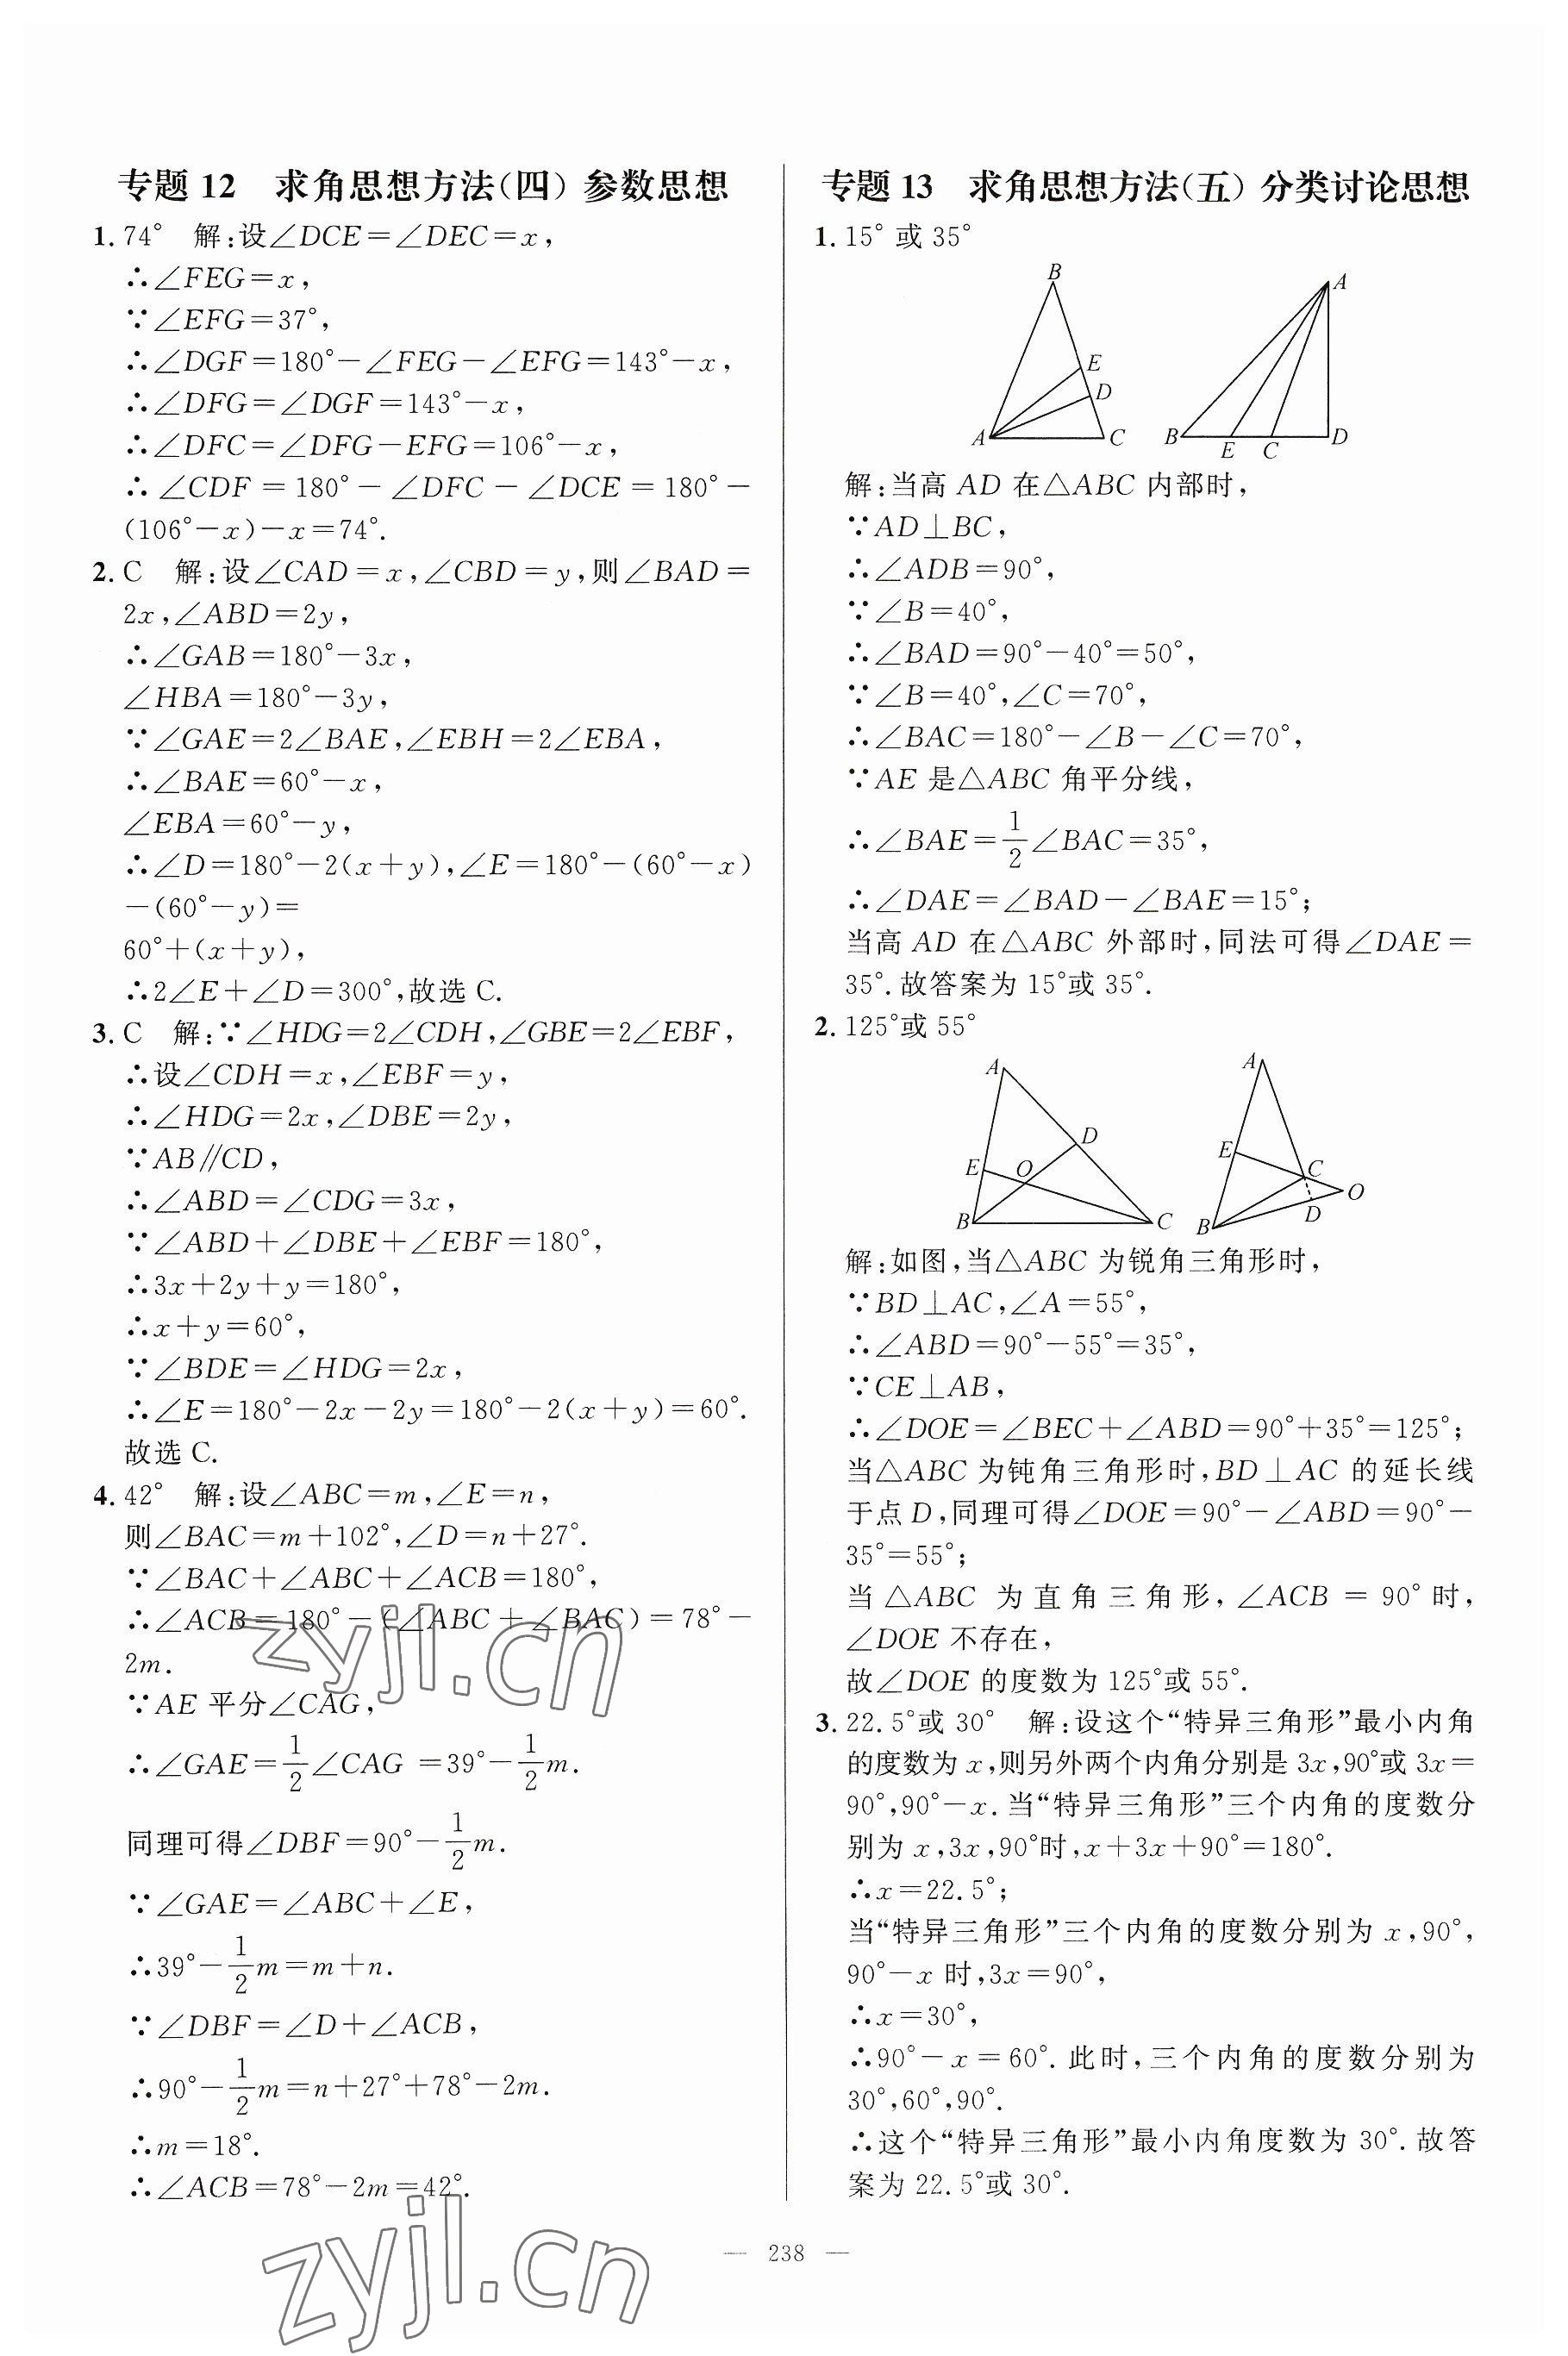 专题 12　求角思想方法(四) 参数思想
1. 74°　解:设∠DCE=∠DEC=x,
∴∠FEG=x,
∵∠EFG=37°,
∴∠DGF=180°-∠FEG-∠EFG=143°-x,
∴∠DFG=∠DGF=143°-x,
∴∠DFC=∠DFG-EFG=106°-x,
∴∠CDF=180°-∠DFC-∠DCE=180°-
(106°-x)-x=74°.
2. C　解:设∠CAD=x,∠CBD=y,则∠BAD=
2x,∠ABD=2y,
∴∠GAB=180°-3x,
∠HBA=180°-3y,
∵∠GAE=2∠BAE,∠EBH=2∠EBA,
∴∠BAE=60°-x,
∠EBA=60°-y,
∴∠D=180°-2(x+y),∠E=180°-(60°-x)
-(60°-y)=
60°+(x+y),
∴2∠E+∠D=300°,故选 C.
3. C　解:∵∠HDG=2∠CDH,∠GBE=2∠EBF,
∴设∠CDH=x,∠EBF=y,
∴∠HDG=2x,∠DBE=2y,
∵AB∥CD,
∴∠ABD=∠CDG=3x,
∵∠ABD+∠DBE+∠EBF=180°,
∴3x+2y+y=180°,
∴x+y=60°,
∵∠BDE=∠HDG=2x,
∴∠E=180°-2x-2y=180°-2(x+y)=60°.
故选 C.
4. 42°　解:设∠ABC=m,∠E=n,
则∠BAC=m+102°,∠D=n+27°.
∵∠BAC+∠ABC+∠ACB=180°,
∴∠ACB=180°-(∠ABC+∠BAC)=78°-
2m.
∵AE 平分∠CAG,
∴∠GAE=1/2∠CAG=39°-1/2m.
同理可得∠DBF=90°-1/2m.
∵∠GAE=∠ABC+∠E,
∴39°-1/2m=m+n.
∵∠DBF=∠D+∠ACB,
∴90°-1/2m=n+27°+78°-2m.
∴m=18°.
∴∠ACB=78°-2m=42°.
专题 13　求角思想方法(五) 分类讨论思想
1. 15°或 35°
B
E
D
A
C
A
B
E
C
D
解:当高 AD 在△ABC 内部时,
∵AD⊥BC,
∴∠ADB=90°,
∵∠B=40°,
∴∠BAD=90°-40°=50°,
∵∠B=40°,∠C=70°,
∴∠BAC=180°-∠B-∠C=70°,
∵AE 是△ABC 角平分线,
∴∠BAE=1/2∠BAC=35°,
∴∠DAE=∠BAD-∠BAE=15°;
当高 AD 在△ABC 外部时,同法可得∠DAE=
35°.故答案为 15°或 35°.
2. 125°或 55°
A
D
E
O
B
C
A
E
C
O
D
B
解:如图,当△ABC 为锐角三角形时,
∵BD⊥AC,∠A=55°,
∴∠ABD=90°-55°=35°,
∵CE⊥AB,
∴∠DOE=∠BEC+∠ABD=90°+35°=125°;
当△ABC 为钝角三角形时,BD⊥AC 的延长线
于点 D,同理可得∠DOE=90°-∠ABD=90°-
35°=55°;
当△ABC 为直角三角形,∠ACB=90°时,
∠DOE 不存在,
故∠DOE 的度数为 125°或 55°.
3. 22.5°或 30°　解:设这个“特异三角形”最小内角
的度数为 x,则另外两个内角分别是 3x,90°或 3x=
90°,90°-x.当“特异三角形”三个内角的度数分
别为 x,3x,90°时,x+3x+90°=180°.
∴x=22.5°;
当“特异三角形”三个内角的度数分别为 x,90°,
90°-x 时,3x=90°,
∴x=30°,
∴90°-x=60°.此时,三个内角的度数分别为
30°,60°,90°.
∴这个“特异三角形”最小内角度数为 30°.故答
案为 22.5°或 30°.
zyjl.cn
zyjl.cn
— 238 —